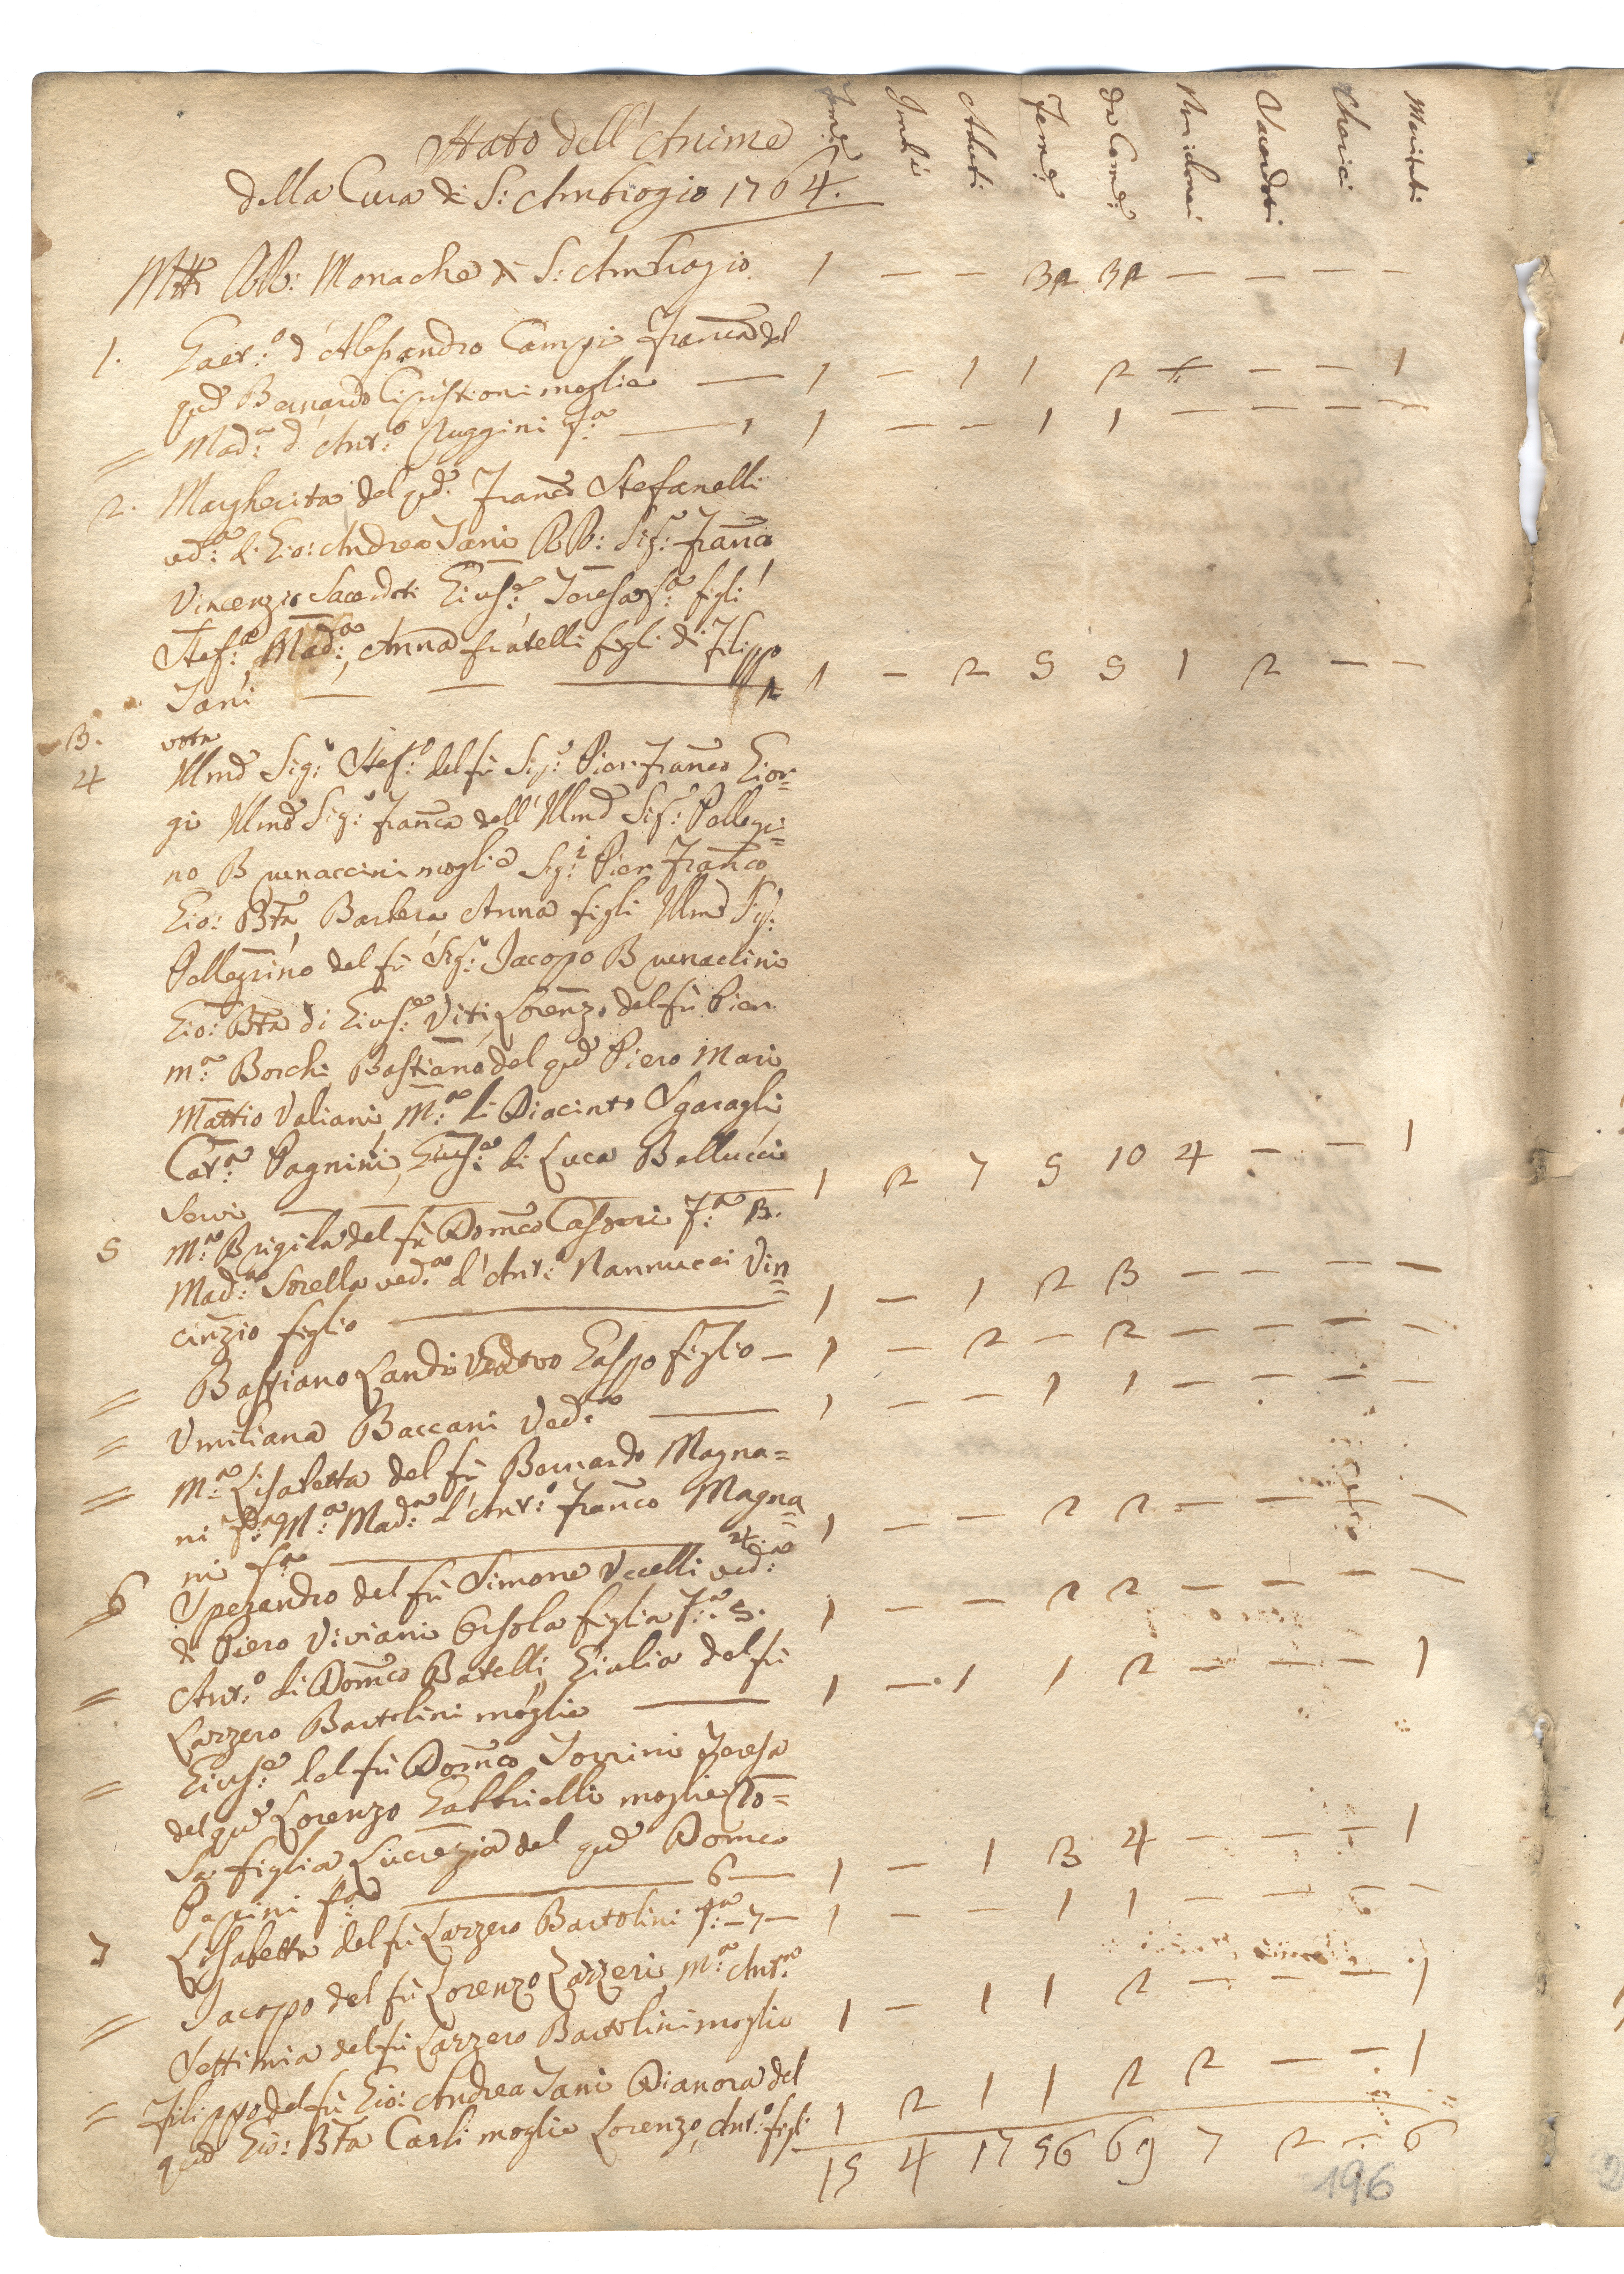 Stato dell' Anime
della Cura di S: Ambrogio 1764.
Fam:e Imb:i Adulti Fem:e da Com:e Sacerdoti Cherici Mariti
RR: Monache di S: Ambrogio 1 — — 32 32 — — — —
1. Gaet:o d'Alesandro Campi Franca del
qud Bernardo Cipistioni moglie — 1 — 1 1 2 — — — 1
= Mad:a d'Ant:o Ruggini f:a — 1 1 — — 1 1 — — — —
2. Margherita del qd: Franco Stefanelli
ved:a di Gio: Andrea Tani RR: Sig:i Franco
Vincenzio Sacerdoti Gius:e, Teresa f:a figli
Stef:o Mad:a, Anna fratelli figli di Filippo
Tani — — — 2 1 — 2 5 5 1 2 — —
3. vota
4 Illmo Sig:r Stef:o del fù Sig:r Pier Franco Gior=
gi Illma Sig:a Franca dell' Illmo Sig:r Pellegri=
no Buonaccini moglie Sig:i Pier Franco
Gio: Bta, Barbera Anna figli Illmo Sig:
Pellegrino del fù Sig:r Jacopo Buonacini
Gio: Bta di Gius:e Viti, Lorenzo del fù Pier
m:a Borchi, Bastiano del qud Piero Mari
Mattio Valiani, M:a di Diacinto Sgaragli
Cat:a Pagnini, Gius:a di Luca Bellucci
servi — — — 1 2 7 5 10 4 — — 1
5 M:a Brigida del fù Domco Casori f:a 3.
Mad:a Sorella ved:a d'Ant:o Nannucci Vin
cenzio figlio — 1 — 1 2 3 — — — —
= Bastiano Landi Vedovo Gaspo figlio — 1 — 2 — 2 — — — —
= Umiliana Baccani Ved:a — 1 — — 1 1 — — — —
= M:a Lisabetta del fù Bernardo Magna=
ni f:a M:a Mad:a d'Ant:o Franco Magna
ni f:a — 4. 1 — — 2 2 — — — —
6 Sperandio del fù Simone Uccelli ved:a
di Piero Viviani Orsola figlia f:a 5. 1 — — 2 2 — — — —
= Ant:o di Domco Batelli, Giulia del fù
Lazzero Bartolini moglie — 1 — 1 1 2 — — — 1
= Gius:e del fù Domco Torrini Teresa
del qud Lorenzo Gabbrielli moglie Ro=
sa figlia Lucrezia del qud Domco
Papini f:a — 6 — 1 — 1 3 4 — — — 1
7 Lisabetta del fù Lazzero Bartolini f:a — 7 — 1 — — 1 1 — — — —
= Jacopo del fù Lorenzo Lazzeri, M:a Ant:a
Settimia del fù Lazzero Bartolini moglie 1 — 1 1 2 — — — 1
= Filippo del fù Gio: Andrea Tani Dianora del
qud Gio: Bta Carli moglie Lorenzo, Ant:o figli 1 2 1 1 2 2 — — 1
15 4 17 56 69 7 2 — 6
196